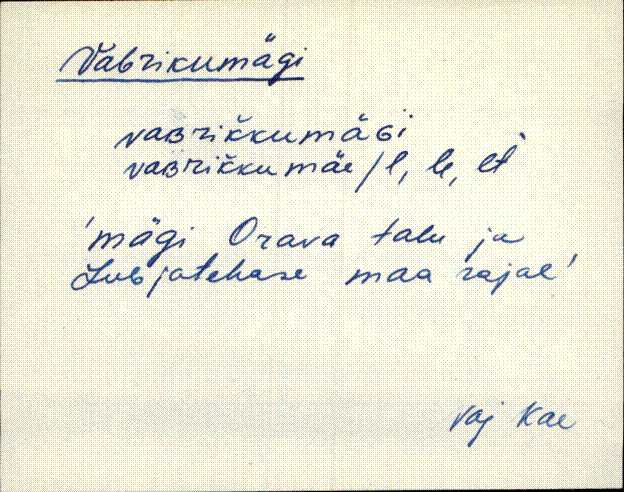 Vabrikumägi
vaʙriǩkumäɢi
vaʙriǩkumäe/l, le, lt
'mägi Orava talu ja
Lubjatehase maa rajal'
Vaj Kae